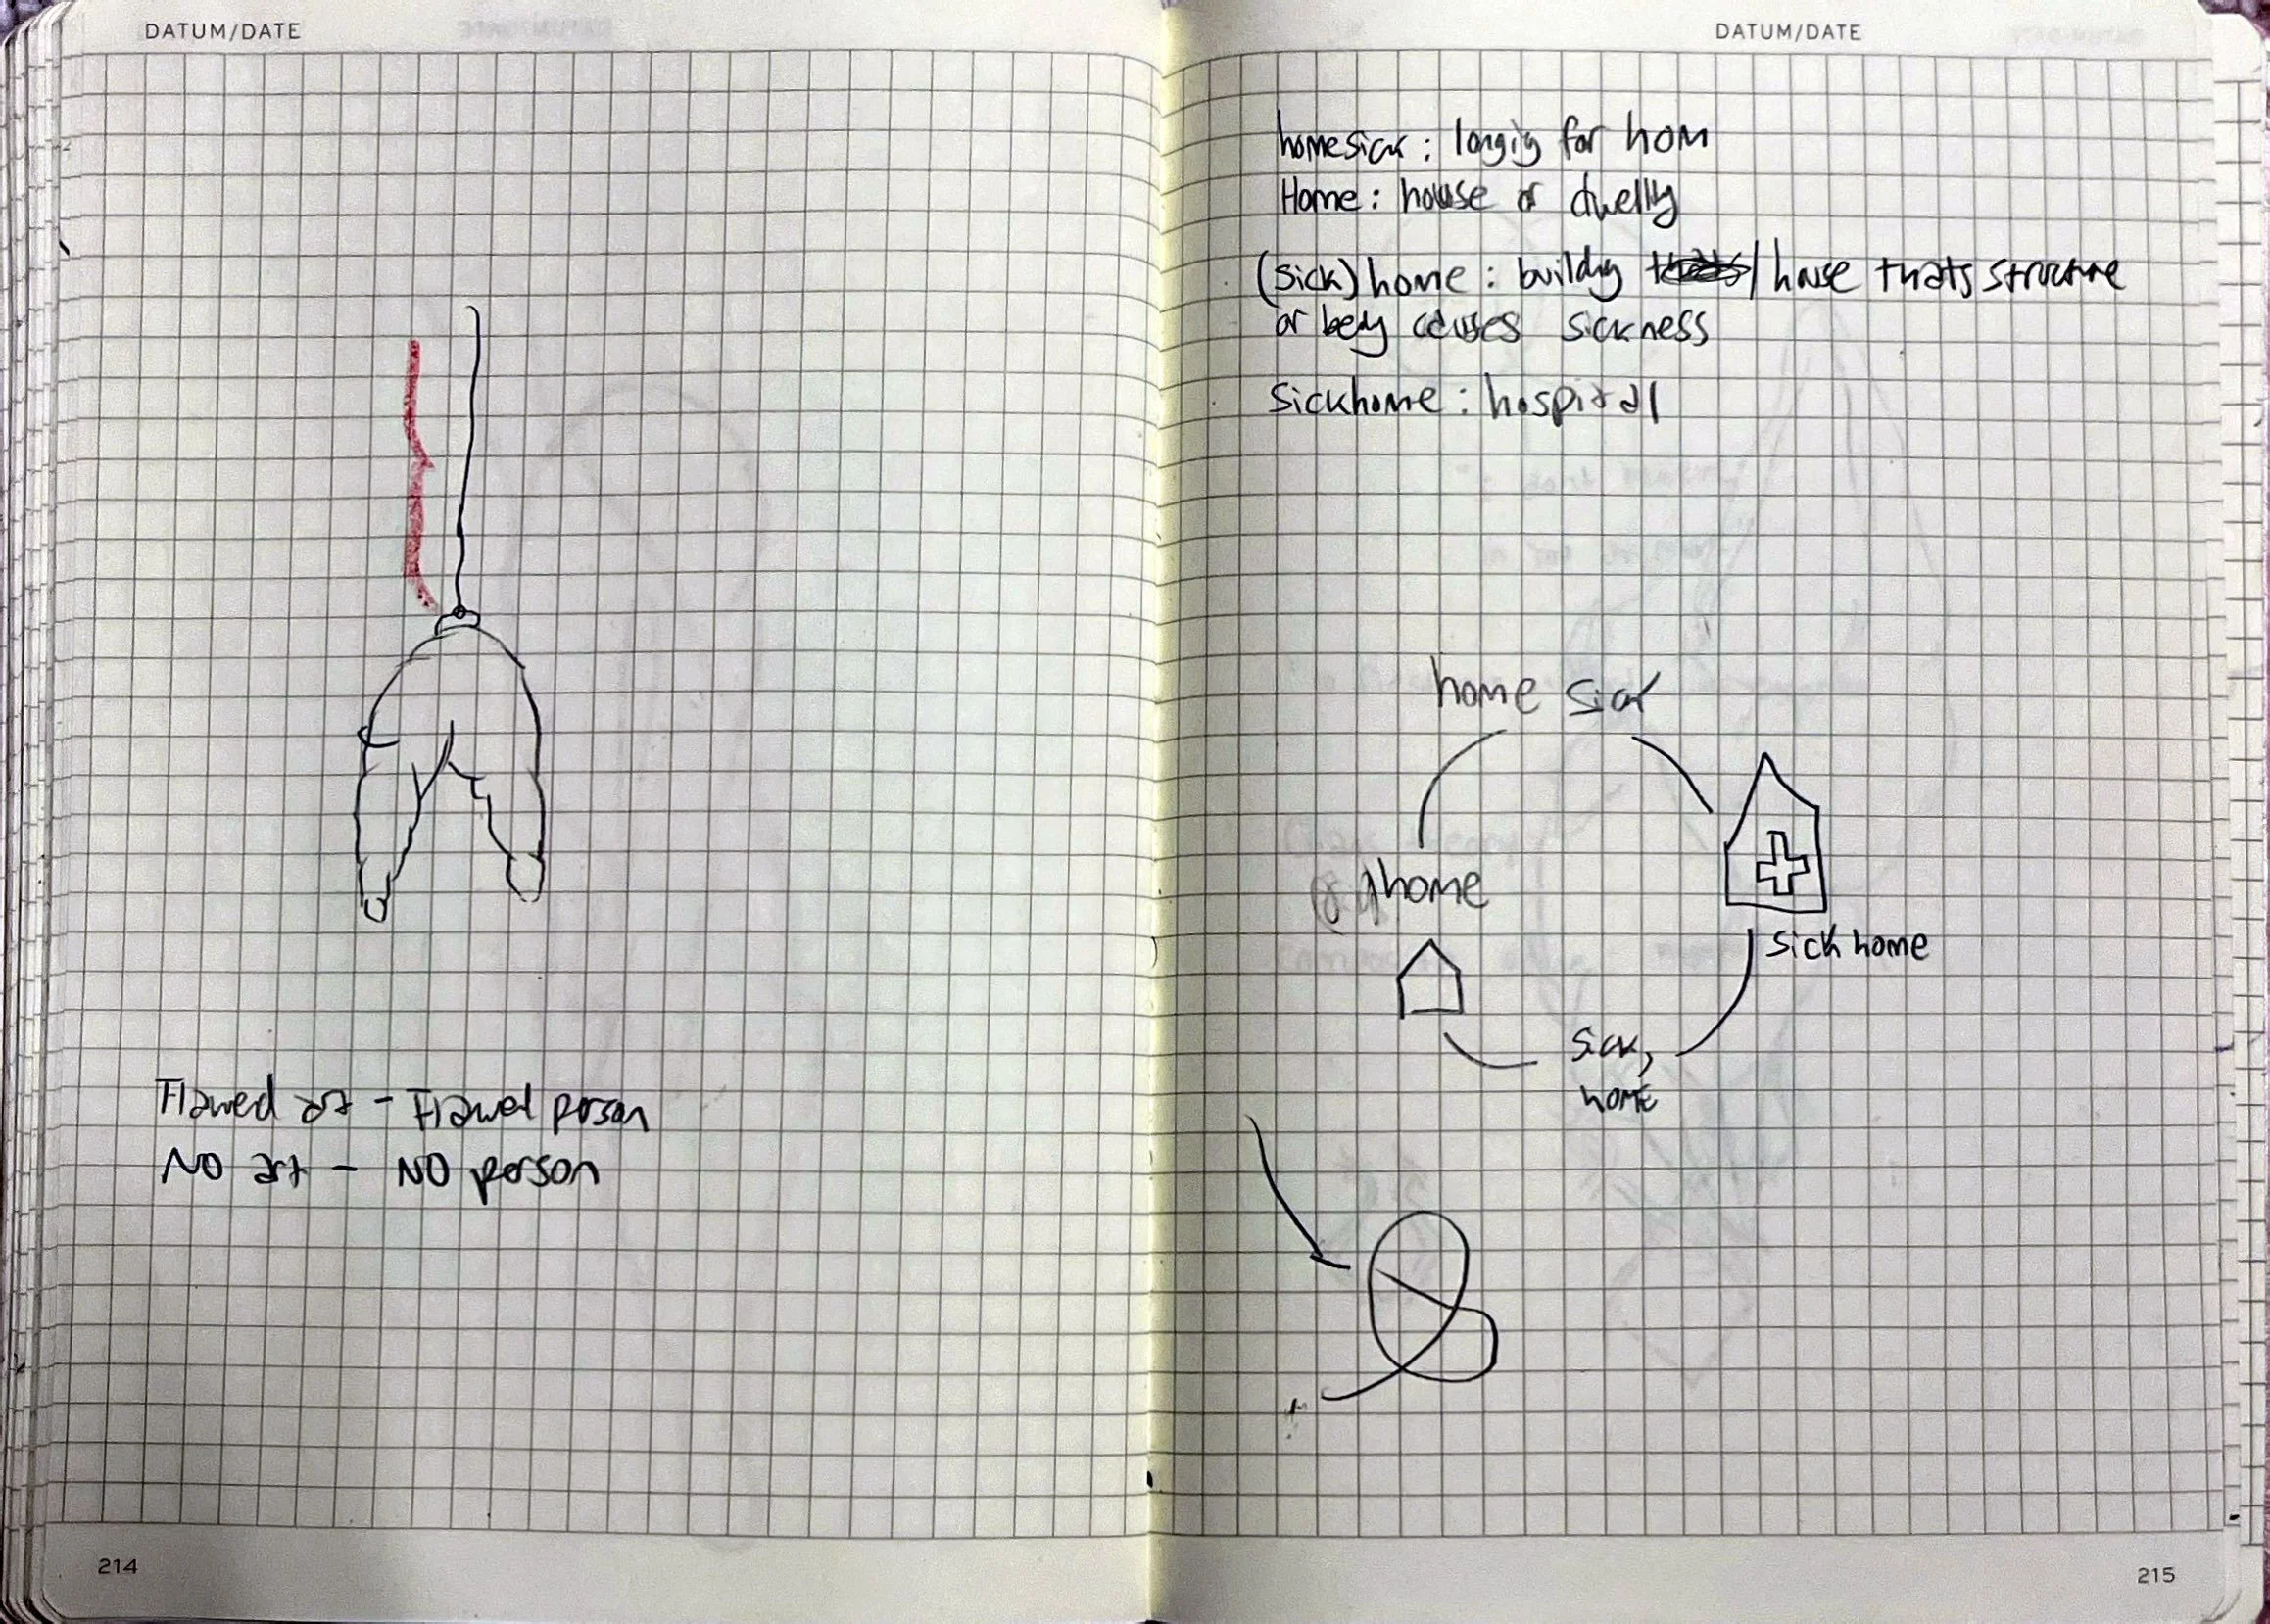 DATUM/DATE
Flawed art - Flawed person
NO art - NO person
214
DATUM/DATE
homesick: longig for hom
Home: house or dwellig
(sick)home: buildig / house thats structure
or causes sickness
Sickhome: hospital
home sick
home
sick home
sick,
home
215